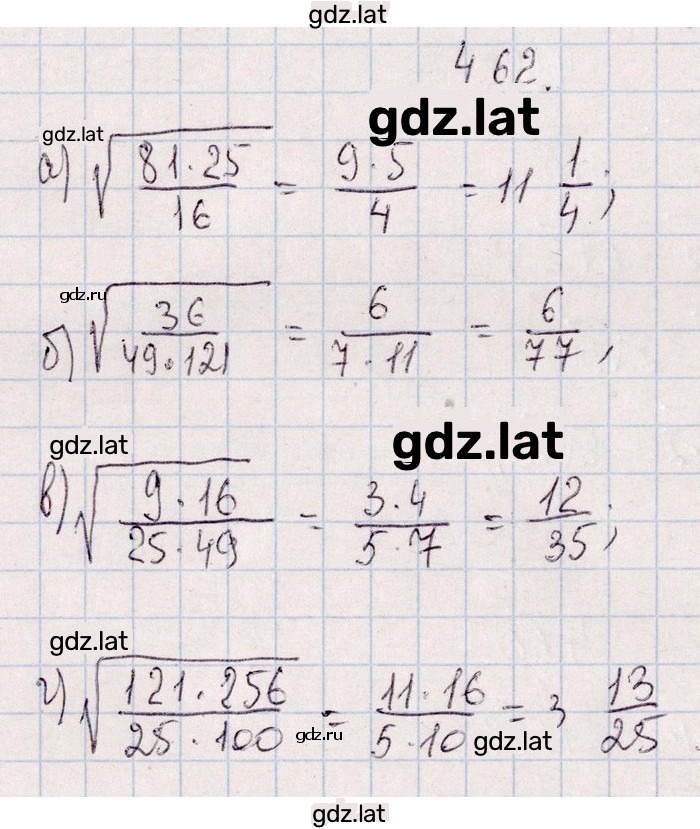 gdz.lat
462.
gdz.lat
gdz.lat
а) √(81·25/16) = 9·5/4 = 11 1/4;
gdz.ru
б) √(36/49·121) = 6/7·11 = 6/77;
gdz.lat
gdz.lat
в) √(9·16/25·49) = 3·4/5·7 = 12/35;
gdz.lat
г) √(121·256/25·100) = 11·16/5·10 = 3 13/25
gdz.ru
gdz.lat
gdz.lat